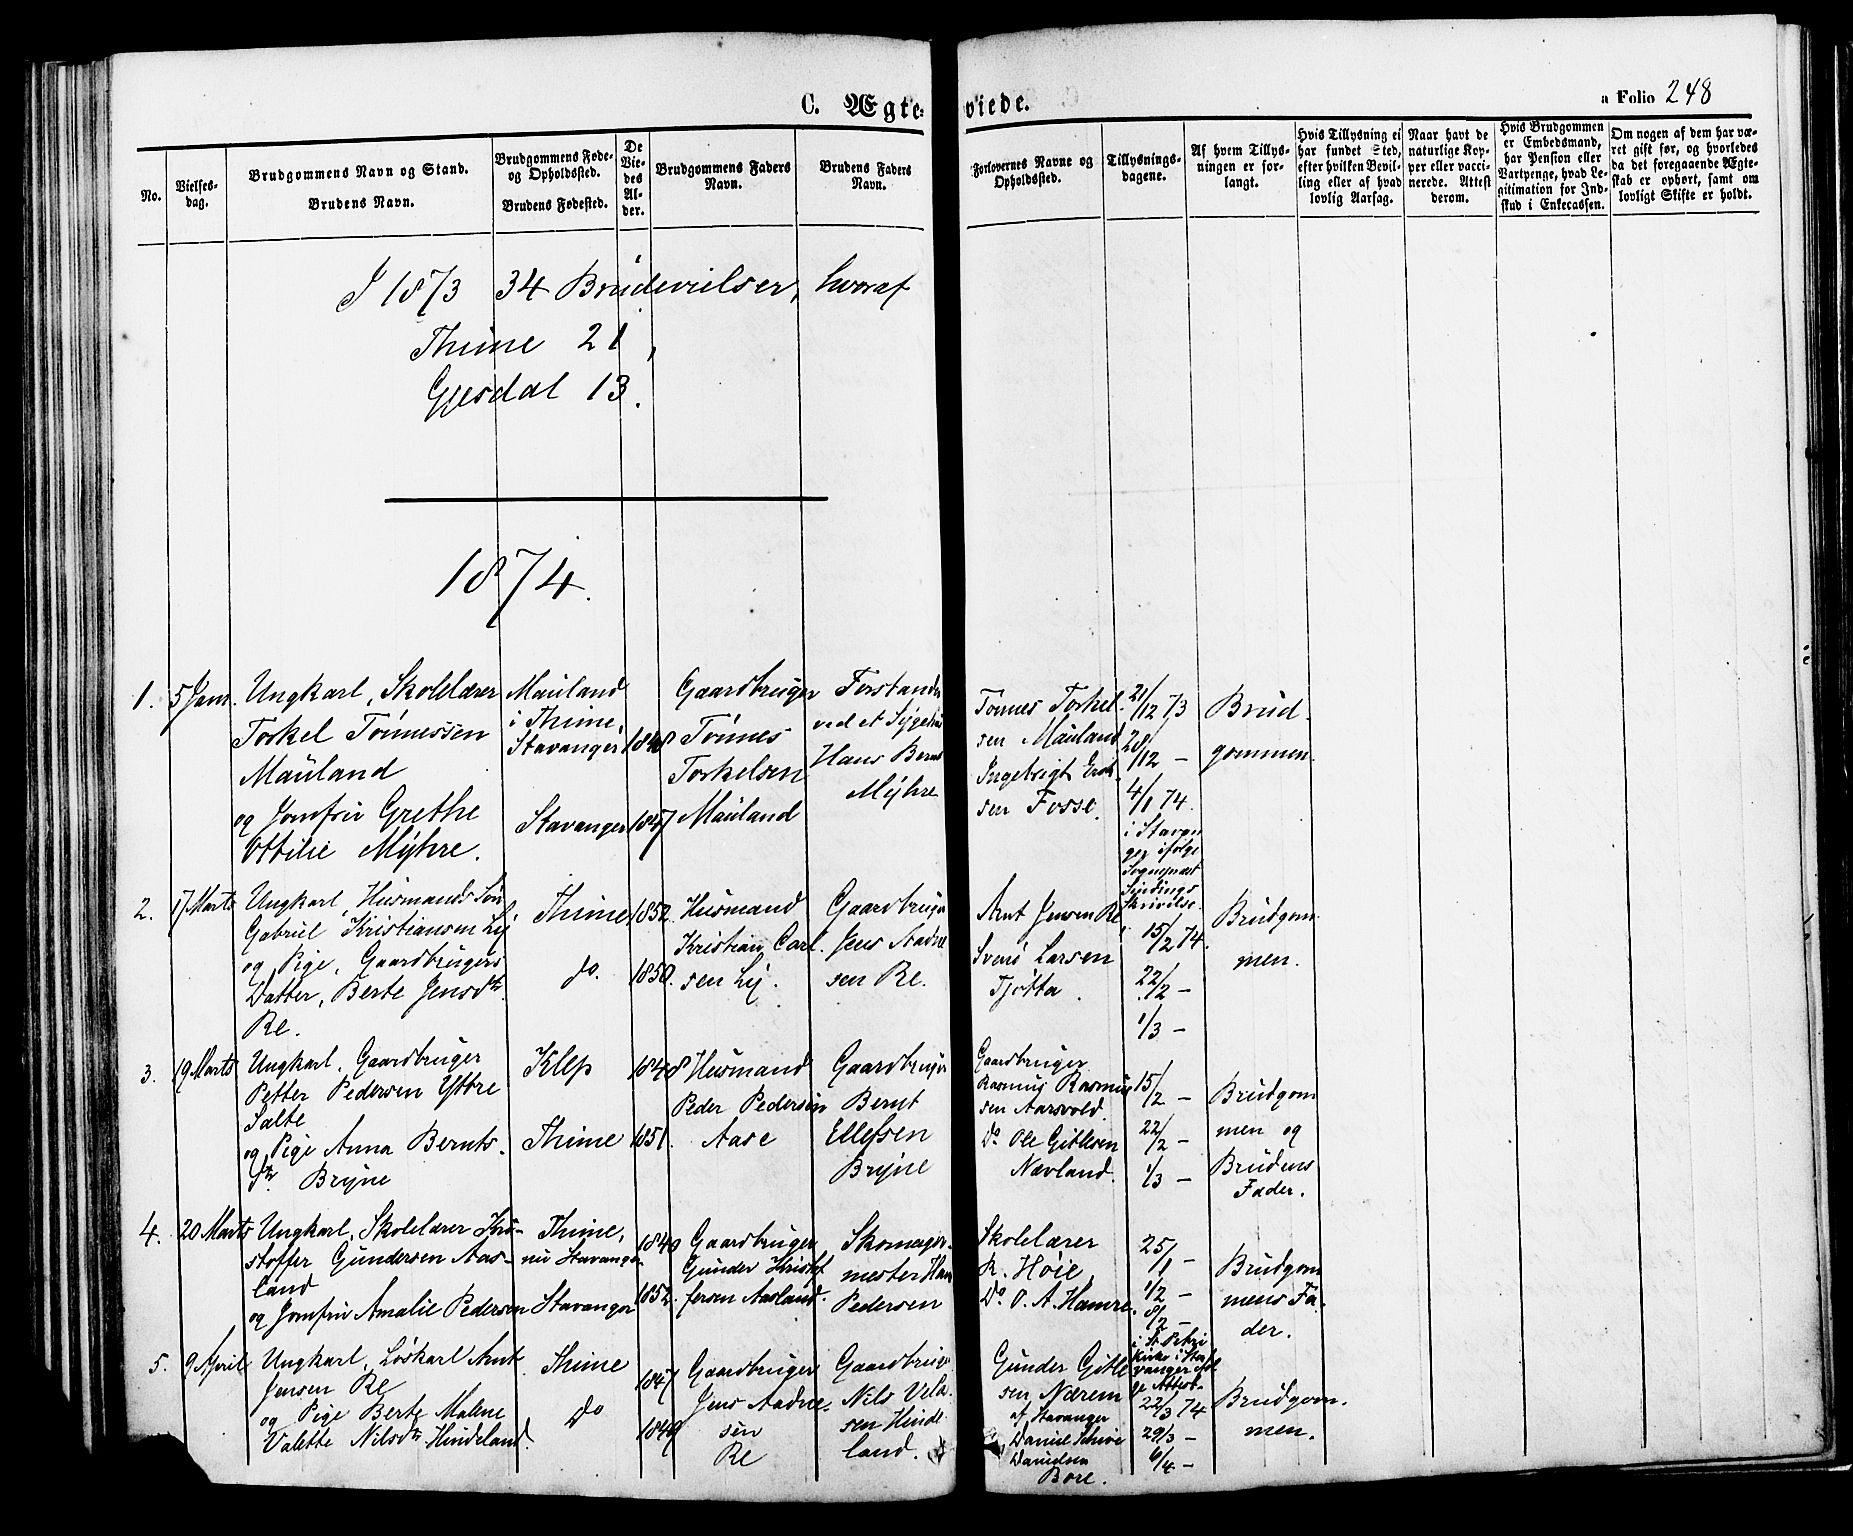 C. Ægte-
viede.
a Folio 248
No.
Vielses-
dag.
Brudgommens Navn og Stand.
Brudens Navn.
Brudgommens Føde-
og Opholdssted.
Brudens Fødested.
De
Vie-
des
Al-
der.
Brudgommens Faders
Navn.
Brudens Faders
Navn.
Forlovernes Navne og
Opholdssted.
Tillysnings-
dagene.
Af hvem Tillys-
ningen er for-
langt.
Hvis Tillysning ei
har fundet Sted,
efter hvilken Bevil-
ling eller af hvad
lovlig Aarsag.
Naar havt de
naturlige Kop-
per eller vacci-
nerede. Attest
derom.
Hvis Brudgommen
er Embedsmand,
har Pension eller
Vartpenge, hvad Le-
gitimation for Ind-
skud i Enkecassen.
Om nogen af dem har væ-
ret gift før, og hvorledes
da det foregaaende Ægte-
skab er ophørt, samt om
lovligt Skifte er holdt.
I 1873 34 Brudevielser, hvoraf
Thime 21,
Gjesdal 13.
1874.
1.
5 Janr.
Ungkarl, Skolelærer
Torkel Tönnessen
Mauland
og Jomfru Grethe
Ottilie Myhre.
Mauland
i Thime,
Stavanger
Stavanger
1848
1847
Gaardbruger
Tönnes
Torkelsen
Mauland
Forstander
ved et Sygehus
Hans Bernt
Myhre
Tönnes Torkel-
sen Mauland
Ingebrigt Erik-
sen Fosse.
21/12 73
28/12 -
4/1 74.
i Stavan
ger ifølge
Sognepræst
Sindings
Skrivelse.
Brud-
gommen
2.
17 Marts
Ungkarl, Husmands Søn
Gabriel Kristiansen Lij
og Pige, Gaardbrugers
Datter, Berte Jensdtr.
Re.
Thime
do.
1852.
1850.
Husmand
Kristian Carl-
sen Lij.
Gaardbruger
Jens Aadne
sen Re.
Arnt Jensen Re
Svend Larsen
Tjötta.
15/2 74.
22/2 -
1/3 -
Brudgom
men.
3.
19 Marts
Ungkarl, Gaardbruger
Petter Pedersen Yttre
Salte
og Pige Anna Bernts-
dtr. Bryne
Klep
Thime
1848
1851.
Husmand
Peder Pedersen
Aase
Gaardbruger
Bernt
Ellefsen
Bryne
Gaardbruger
Rasmus Rasmus
sen Aarsvold.
Do Ole Gitlesen
Nævland.
15/2 -
22/2 -
1/3 -
Brudgom
men og
Brudens
Fader.
4.
20 Marts
Ungkarl, Skolelærer Kri-
stoffer Gundersen Aas-
land
og Jomfru Amalie Pedersen
Thime,
nu Stavanger
Stavanger
1849
1852.
Gaardbruger
Gunder Kristof
fersen Aasland.
Skomager-
mester Han
Pedersen
Skolelærer
R. Höie,
Do O. A. Hamre.
25/1 -
1/2 -
8/2 -
i St. Petri
Kirke i Sta
vanger iföl
ge Attest.
Brudgom
mens Fa-
der.
5.
9 April
Ungkarl, Löskarl Arnt
Jensen Re
og Pige Berte Malene
Valette Nilsdtr Hindeland.
Thime
Do
1847
1849
Gaardbruger
Jens Aadne-
sen
Re
Gaardbruger
Nils Vela-
sen Hinde
land.
Gunder Gitle
sen Nærem
af Stavanger
Daniel Schive
Danielsen
Bore.
22/3 74
29/3 -
6/4 -
Brudgom-
men.